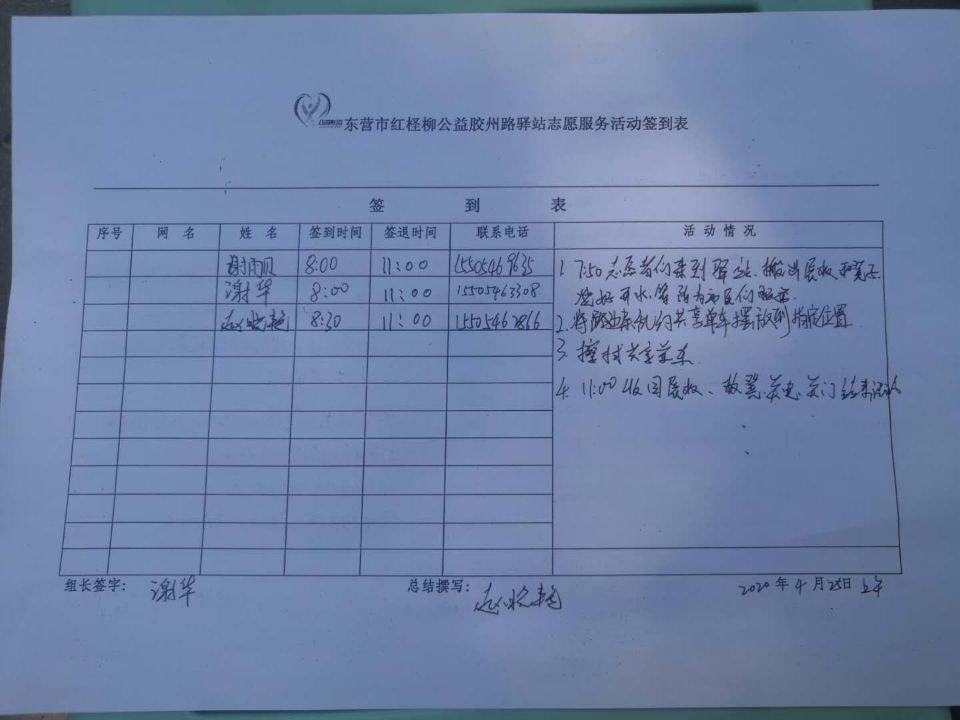 东营市红柽柳公益胶州路驿站志愿服务活动签到表
签 到 表
序号 网 名 姓 名 签到时间 签退时间 联系电话 活 动 情 况
谢丽贝 8:00 11:00 15505469635
谢华 8:00 11:00 15505463308
赵晓艳 8:30 11:00 15505462866
1. 7:50志愿者们来到驿站、搬出展板和
烧好开水、
2. 将路边杂乱的共享单车摆放到指定位置
3. 擦拭共享单车
4. 11:00收回展板、关电、关门结束
组长签字: 谢华 总结撰写: 赵晓艳 2020 年 4 月 25日 上午